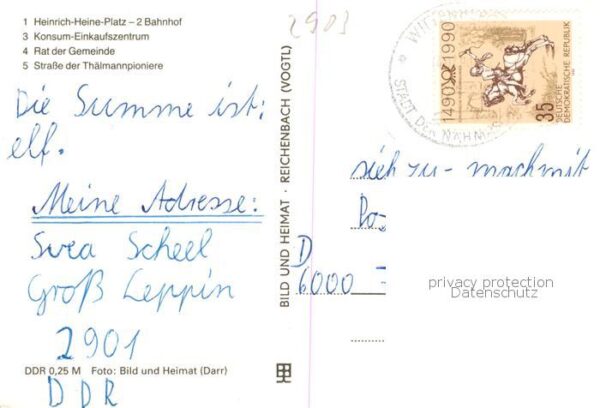 1 Heinrich-Heine-Platz – 2 Bahnhof
3 Konsum-Einkaufszentrum
4 Rat der Gemeinde
5 Straße der Thälmannpioniere
Die Summe ist:
elf.
Meine Adresse:
Svea Scheel
Groß Leppin
2901
DDR 0,25 M Foto: Bild und Heimat (Darr)
DDR
BILD UND HEIMAT · REICHENBACH (VOGTL)
2903
STADT DER
1490 1990
35
DEUTSCHE
DEMOKRATISCHE REPUBLIK
sieh zu - mach mit
D
6000
privacy protection
Datenschutz